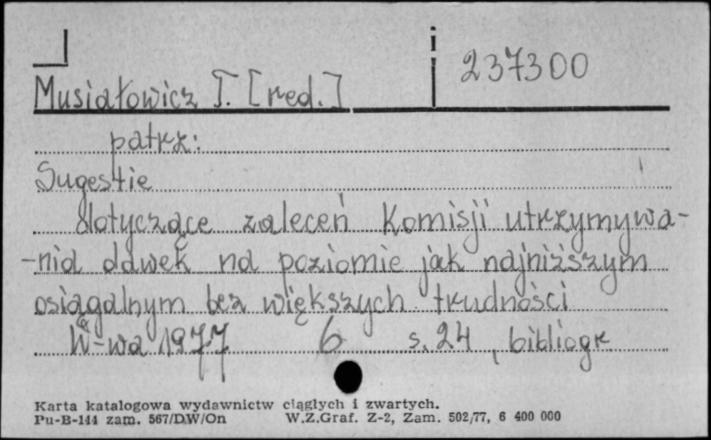 i
237300
Musiałowicz T. [red.]
patrz:
Sugestie
dotyczące zaleceń Komisji utrzymywa-
-nia dawek na poziomie jak najniższym
osiągalnym bez większych trudności
W-wa 1977 6 s. 24, bibliogr
Karta katalogowa wydawnictw ciągłych i zwartych.
Pu-B-141 zam. 567/DW/On W.Z.Graf. Z-2, Zam. 502/77, 6 400 000